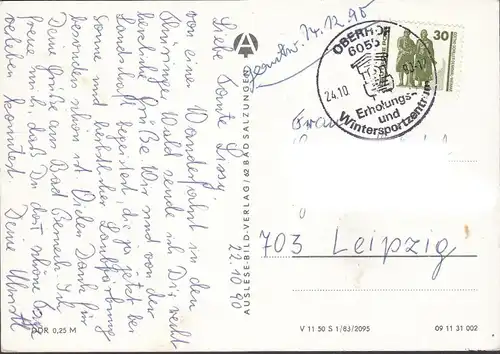 Liebe Tante Lissy.
von einer Wanderfahrt in den
Thüringer Wald sende ich Dir recht
herzliche Grüße. Wir sind von der
Landschaft begeistert, die jetzt bei
Sonne und herbstlicher Laubfärbung
besonders schön ist. Vielen Dank für
Deine Grüße aus Bad
freue mich, daß Du dort schöne Tage
verleben konntest. Deine
22.10.90
DDR 0,25 M
AUSLESE-BILD-VERLAG / 62 BAD SALZUNGEN
14.12.90
OBERHOF
6055
24.10.
Erholungs-
und
Wintersportzentrum
30
Frau
703 Leipzig
V 11 50 S 1/83/2095
09 11 31 002